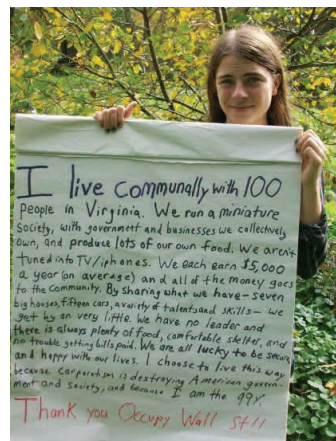 I live communally with 100
People in Virginia. We run a miniature
society, with government and businesses we collectively
own, and produce lots of our own food. We aren't
tuned into TV/iphones. We each earn $5,000
a year (on average) and all of the money goes
to the community. By sharing what we have - seven
big houses, fifteen cars, a variety of talents and skills - we
get by on very little. We have no leader and
there is always plenty of food, comfortable shelter, and
no trouble getting bills paid. We are all lucky to be secure
and happy with our lives. I choose to live this way
because corporation is destroying American govern-
ment and society, and because I am the 99%.
Thank you Occupy Wall St!!